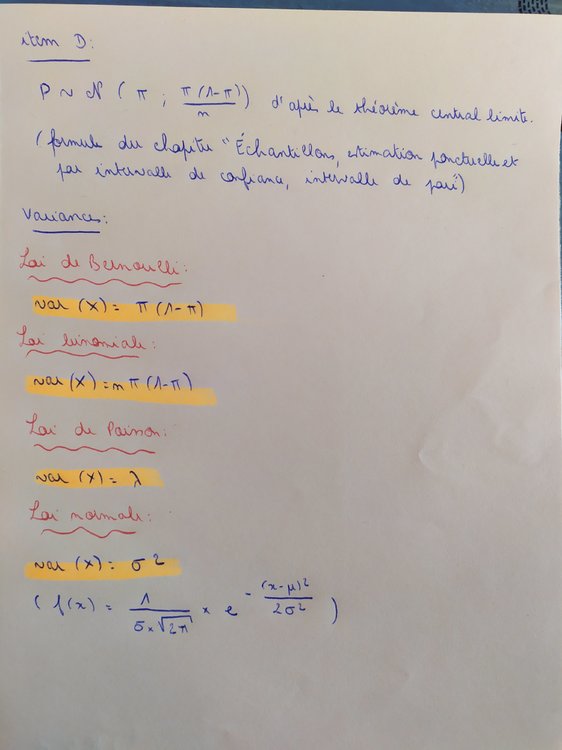 item D:
P ~ N ( π ; π(1-π)/n ) d'après le théorème central limite.
(formule du chapitre "Échantillons, estimation ponctuelle et
par intervalle de confiance, intervalle de pari")
Variances:
Loi de Bernoulli:
var (X) = π (1-π)
Loi binomiale:
var (X) = n π (1-π)
Loi de Poisson:
var (X) = λ
Loi normale:
var (X) = σ²
( f(x) = 1/(σ×√2π) × e^-(x-μ)²/2σ² )